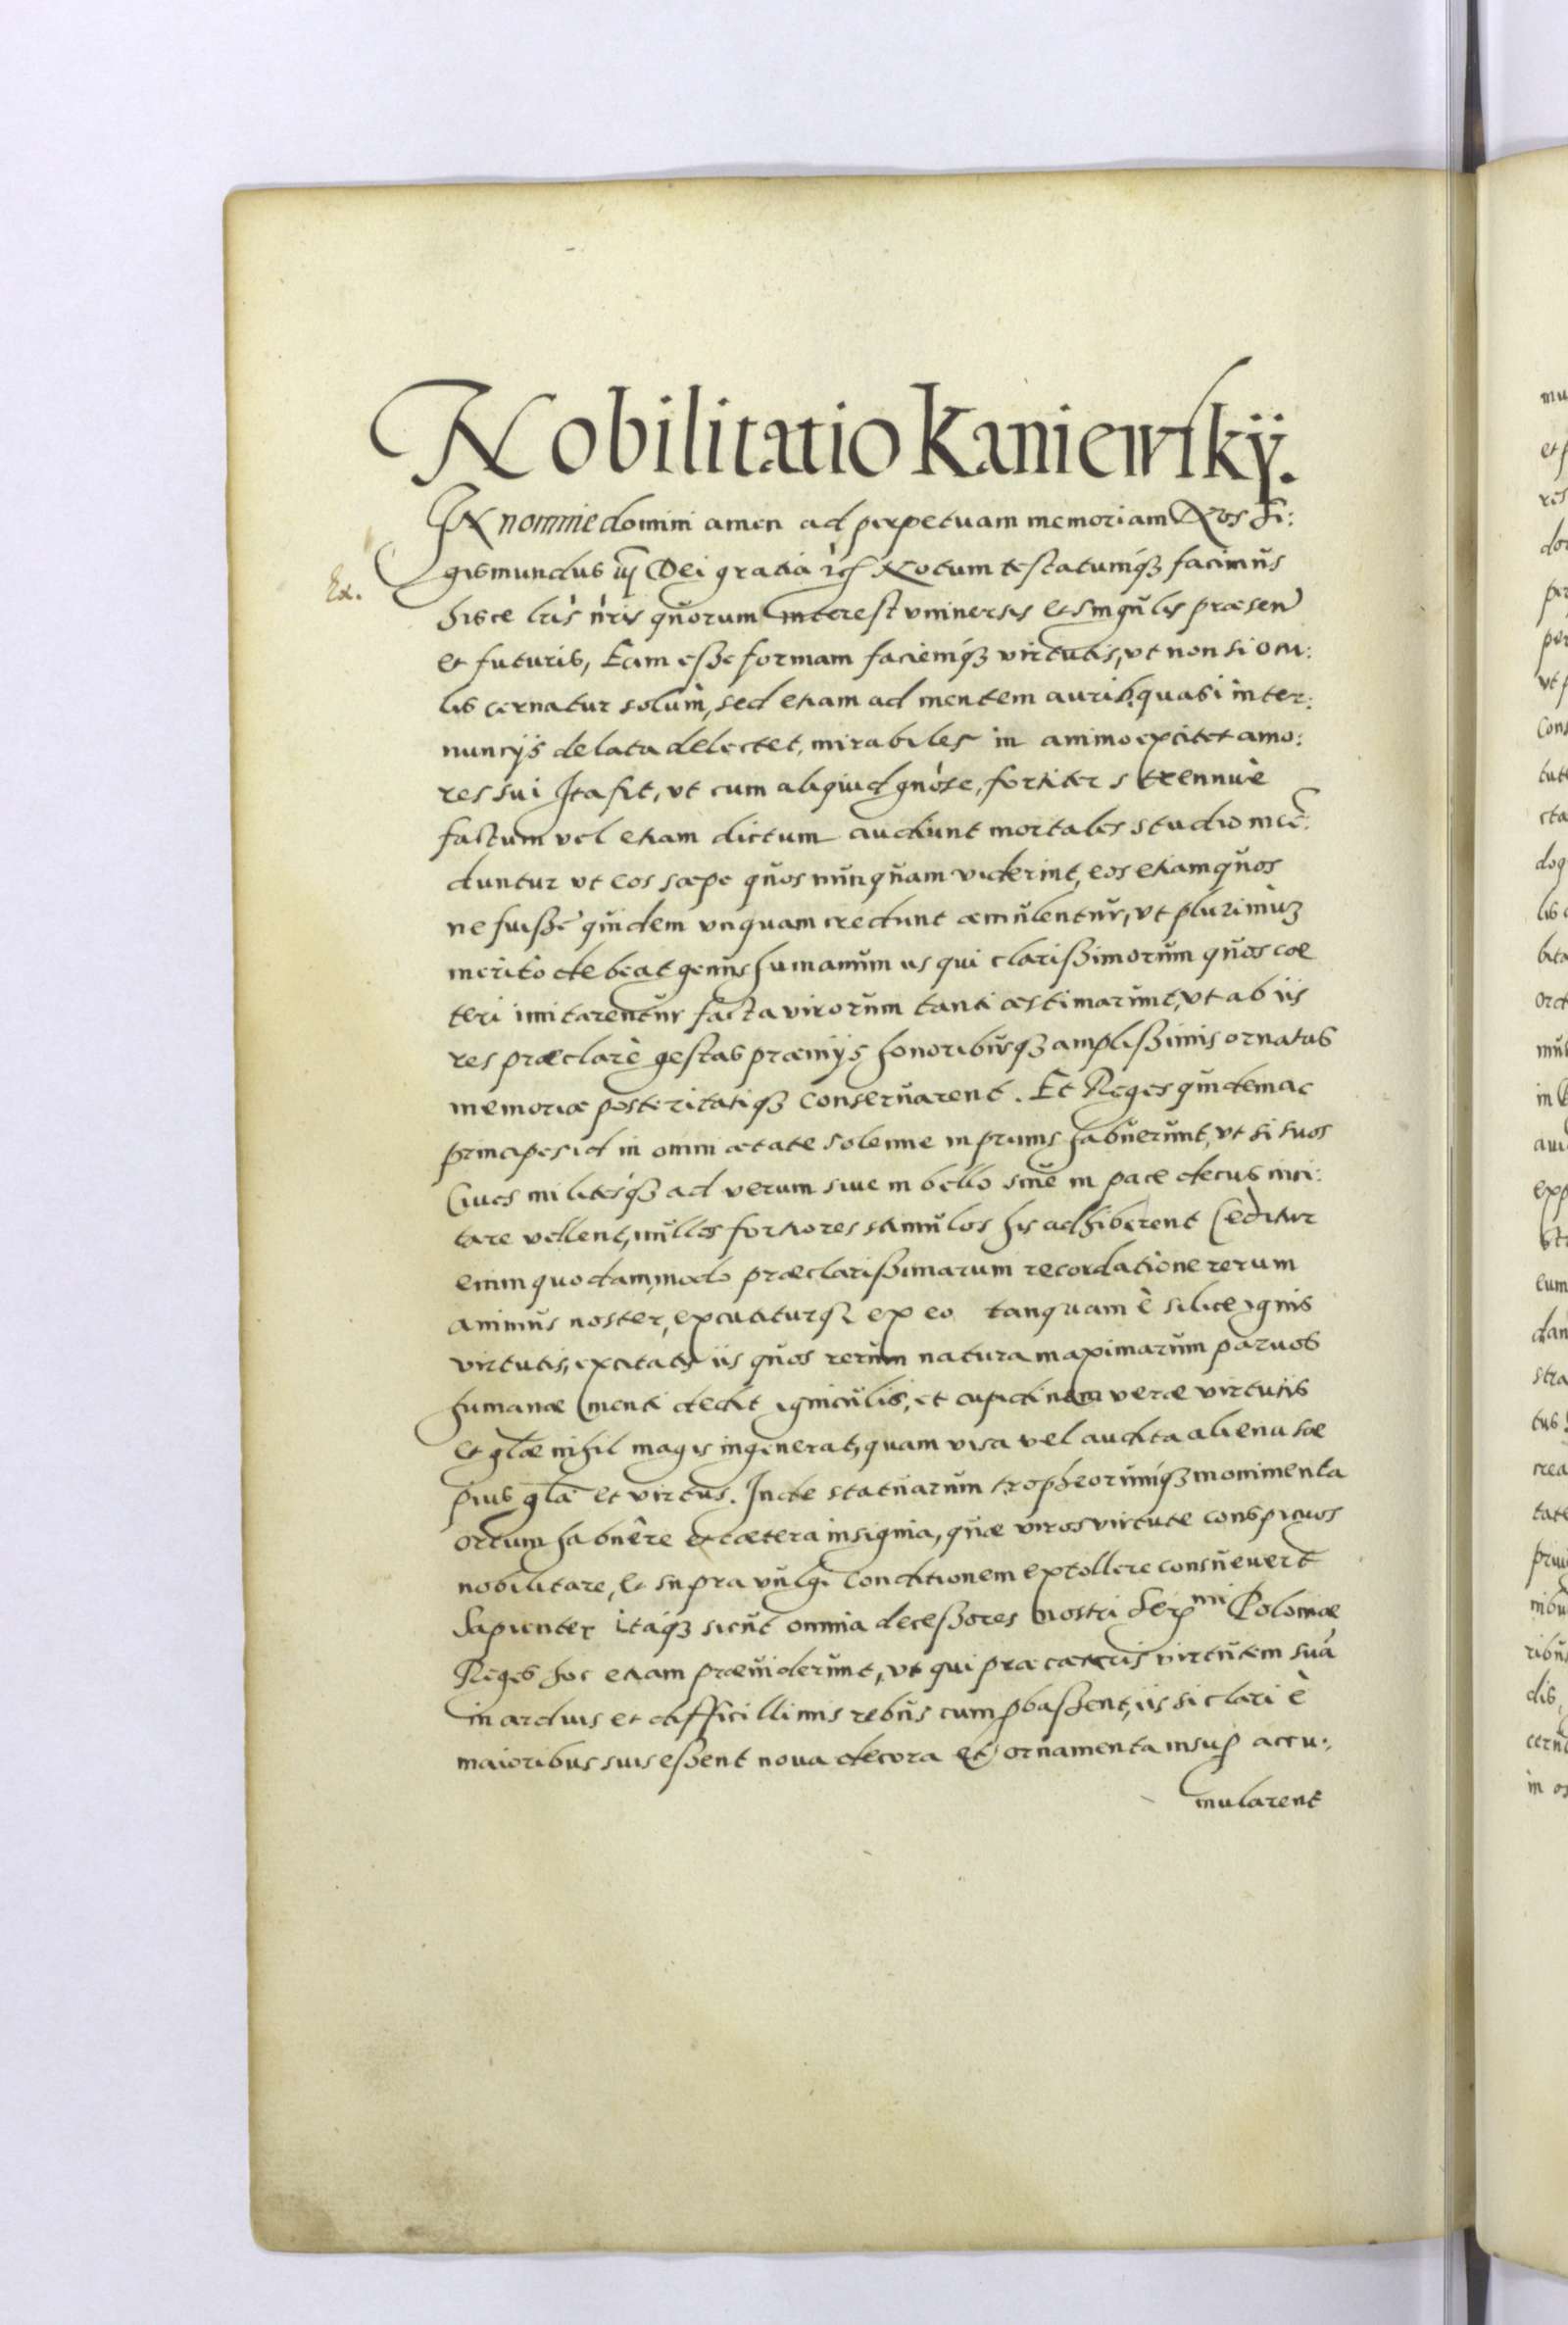 Nobilitatio Kaniewskÿ.
IN nomine domini amen ad perpetuam memoriam Nos Si:
gismundus iij Dei gratia rēx Notum testatumq́ʒ facimus
Ex.
hisce lrīs nr̄is quorum interest vniuersis et singulis præsen
et futuris, Eam eße formam faciemq́ʒ virtutis, vt non si ocu:
lis cernatur solum̀, sed etiam ad mentem aurib. quasi inter:
nuncijs delata delectet, mirabiles in animo excitet amo:
res sui Ita fit, vt cum aliquid gnose, fortiter strennuè
factum vel etiam dictum audiunt mortales studio incē:
duntur vt eos sæpe quos nunquam viderint, eos etiam quos
ne fuißē quidem vnquam credunt æmulentur, vt plurimùʒ
meritò debeat genus humanum ijs qui clarißimorum quos cœ
teri imitarentur facta virorum tanti æstimarunt, vt ab iis
res præclarè gestas præmijs honoribusq́ʒ amplißimis ornatas
memoriæ posteritatiqʒ conseruarent. Et Reges quidem ac
principes id in omni ætate solenne inprimis habuerunt, vt si suos
Ciues militesq́ʒ ad verum siue in bello siue in pace decus inci:
tare vellent, nullos fortiores stimulos his adhiberent Ceditur
enim quodammodo præclarißimarum recordatione rerum
animus noster, excutiturqʒ ex eo tanquam è silice ignis
virtutis, excitatis iis quos rerum natura maximarum paruos
humanæ menti dedit igniculis, et cupidinem veræ virtutis
et glǣ nihil magis ingenerat, quam visa vel audita aliena sæ
pius glā et virtus. Inde statuarum tropheorumq́ʒ monimenta
ortum habuêre et cætera insignia, quæ viros virtute conspicuos
nobilitare, et supra vulgi conditionem extollere consueuert̄
Sapienter itáqʒ sicut omnia deceßores nostri Serᵐᵐⁱ Poloniæ
Reges hoc etiam præuiderunt, vt qui præ cæteris virtutem suā
in arduis et difficillimis rebus cum ꝓbaßent, iis si clari è
maioribus suis eßent noua decora et ornamenta insuꝑ accu:
mularent